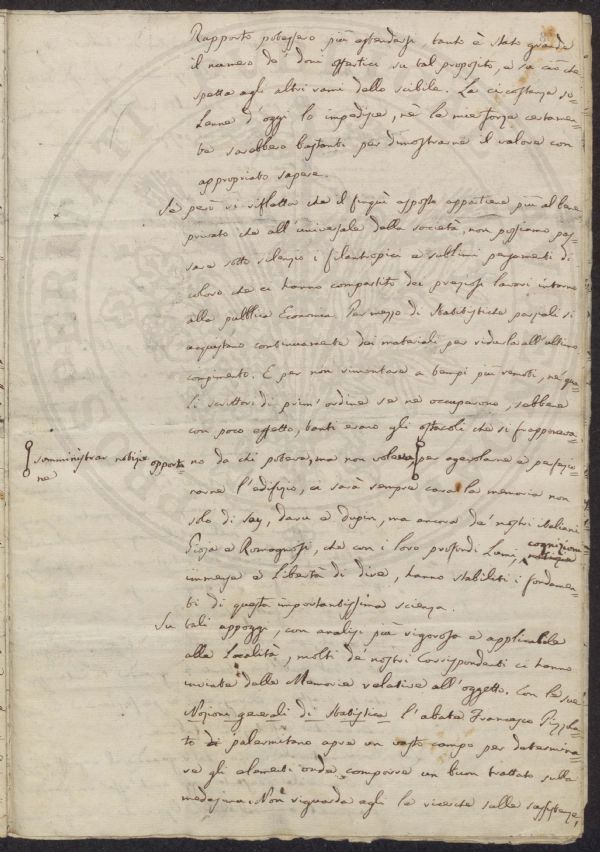 Rapporto potessero più estendersi tanto è stato grande
il numero de' doni offertici su tal proposito, e su ciò che
spetta agli altri rami dello scibile. La circostanza so-
lenne d'oggi lo impedisce, nè le mie forze certamen-
te sarebbero bastanti per dimostrarne il valore con
appropriato sapere.
Se però si rifletta che il finquì esposto appartiene più al bene
privato che all'universale della società, non possiamo pas-
sare sotto silenzio i filantropici e sublimi pensamenti di
coloro che ci hanno compartito dei preziosi lavori intorno
alla pubblica Economia. Per mezzo di statistiche parziali si
acquistano continuamente dei materiali per ridurla all'ultimo
compimento. E per non rimontare a tempi più remoti, ne' qua-
li scrittori di prim'ordine se ne occuparono, sebbene
con poco effetto, tanti erano gli ostacoli che si frapponeva-
no da chi poteva, ma non voleva per agevolarne e perfezio-
somministrar notizie opportu-
ne
narne l'edifizio, ci sarà sempre cara la memoria non
solo di Say, Daru e Dupin, ma ancora de' nostri Italiani
Gioja e Romagnosi, che con i loro profondi Lumi, cognizioni
immense e Libertà di dire, hanno stabiliti i fondamen-
ti di questa importantissima scienza.
Su tali appoggi, con analisi più rigorosa e applicabile
alla Località, molti de' nostri Corrispondenti ci hanno
inviate delle Memorie relative all'oggetto. Con le sue
Nozioni generali di Statistica l'abate Francesco
to di palermitano apre un vasto campo per determina-
re gli elementi onde comporre un buon trattato sulla
medesima. Non riguarda egli le ricerche sulle sussistenze,